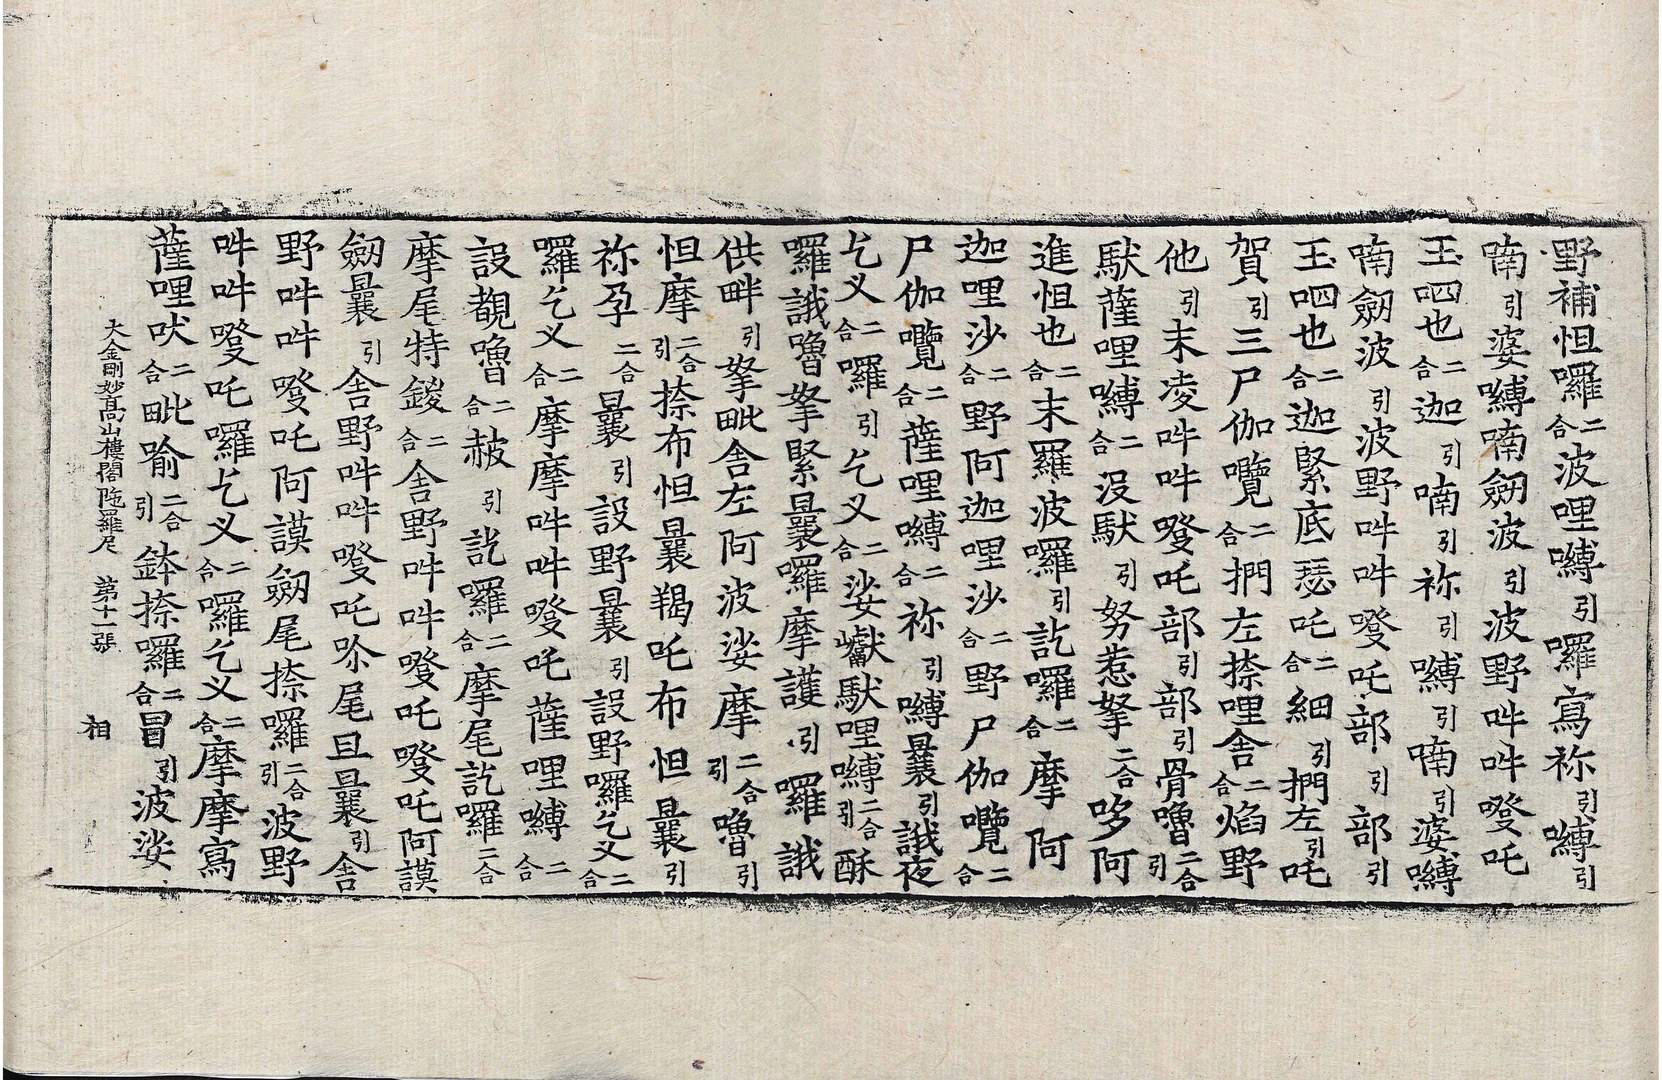 野補怛囉二合波哩嚩引囉寫祢引嚩引
喃引婆嚩喃劒波引波野吽吽𠽾吒
玉呬也二合迦引喃引祢引嚩引喃引婆嚩
喃劒波引波野吽吽𠽾吒部引部引
玉呬也二合迦緊底瑟吒二合細引捫左引吒
賀引三尸伽囕二合捫左捺哩舍二合焰野
他引末凌吽吽𠽾吒部引部引骨嚕二合引
馱薩哩嚩二合沒馱引努惹拏二合哆阿
進怛也二合末羅波囉引訖囉二合摩阿
迦哩沙二合野阿迦哩沙二合野尸伽囕二合
尸伽囕二合薩哩嚩二合祢引嚩曩引誐夜
乞义二合囉引乞义二合娑巘馱哩嚩二合引酥
囉誐嚕拏緊曩囉摩護引囉誐
供畔引拏毗舍左阿波娑摩二合引嚕引
怛摩二合引捺布怛曩羯吒布怛曩引
祢孕二合曩引設野曩引設野囉乞义二合
囉乞义二合摩摩吽吽𠽾吒薩哩嚩二合
設覩嚕二合赦引訖囉二合摩尾訖囉二合
摩尾特鍐二合舍野吽吽𠽾吒𠽾吒阿謨
劒曩引舍野吽吽𠽾吒尒尾且曩引舍
野吽吽𠽾吒阿謨劒尾捺囉二合引波野
吽吽𠽾吒囉乞义二合囉乞义二合摩摩寫
薩哩吠二合毗喻二合引鉢捺囉二合冒引波娑
大金剛妙高山樓閣陁羅尼 第十一張 相